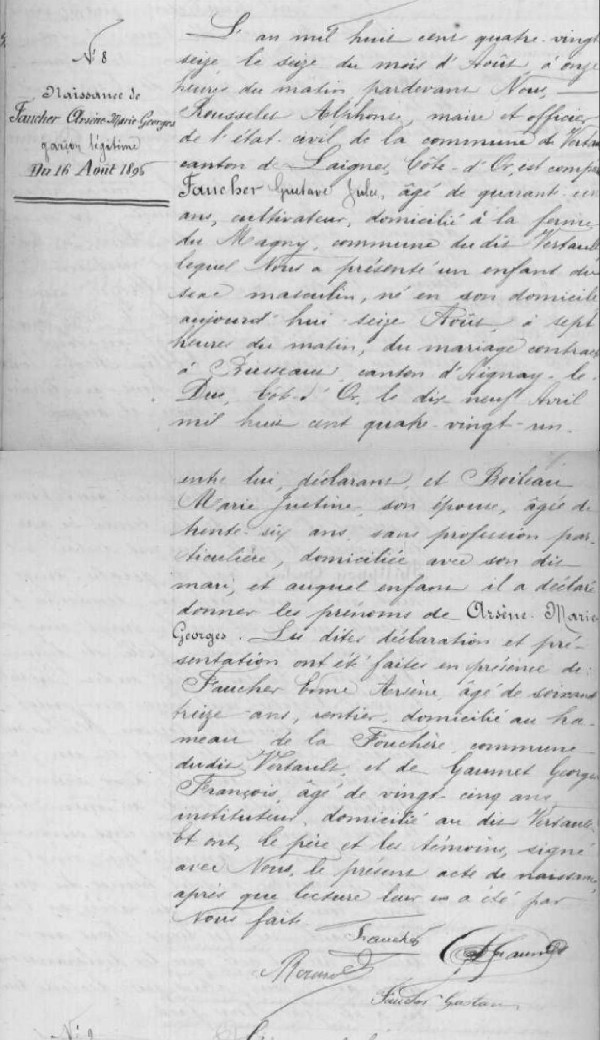 N° 8
Naissance de
Faucher Arsène Marie Georges
garçon légitime
Du 16 Août 1896
L'an mil huit cent quatre-vingt
seize le seize du mois d'Août à onze
heures du matin pardevant Nous,
Rousselet Alphonse, maire et officier
de l'état civil de la commune de Vertau
canton de Laignes, Côte-d'Or, est compa
Faucher Gustave Jules, âgé de quarante un
ans, cultivateur, domicilié à la ferme
du Magny, commune du dit Vertault
lequel Nous a présenté un enfant du
sexe masculin, né en son domicile
aujourd'hui seize Août, à sept
heures du matin, du mariage contrac
à canton d'Aignay-le-
Duc, Côte-d'Or, le dix neuf Avril
mil huit cent quatre-vingt-un
entre lui, déclarant, et Boileau
Marie Justine, son épouse, âgée de
trente-six ans, sans profession par-
ticulière, domiciliée avec son dit
mari, et auquel enfant il a déclaré
donner les prénoms de Arsène-Marie
Georges. Les dites déclaration et pré-
sentation ont été faites en présence de:
Faucher Edme Arsène, âgé de soixante
treize ans, rentier, domicilié au ha-
meau de la Fouchère, commune
du dit Vertault, et de Gaumet Georges
François, âgé de vingt-cinq ans
instituteur, domicilié au dit Vertault
Et ont, le père et les témoins, signé
avec Nous, le présent acte de naissance,
après que lecture leur en a été par
Nous faite
Faucher
Gaumet
Faucher Gustave
N° 9